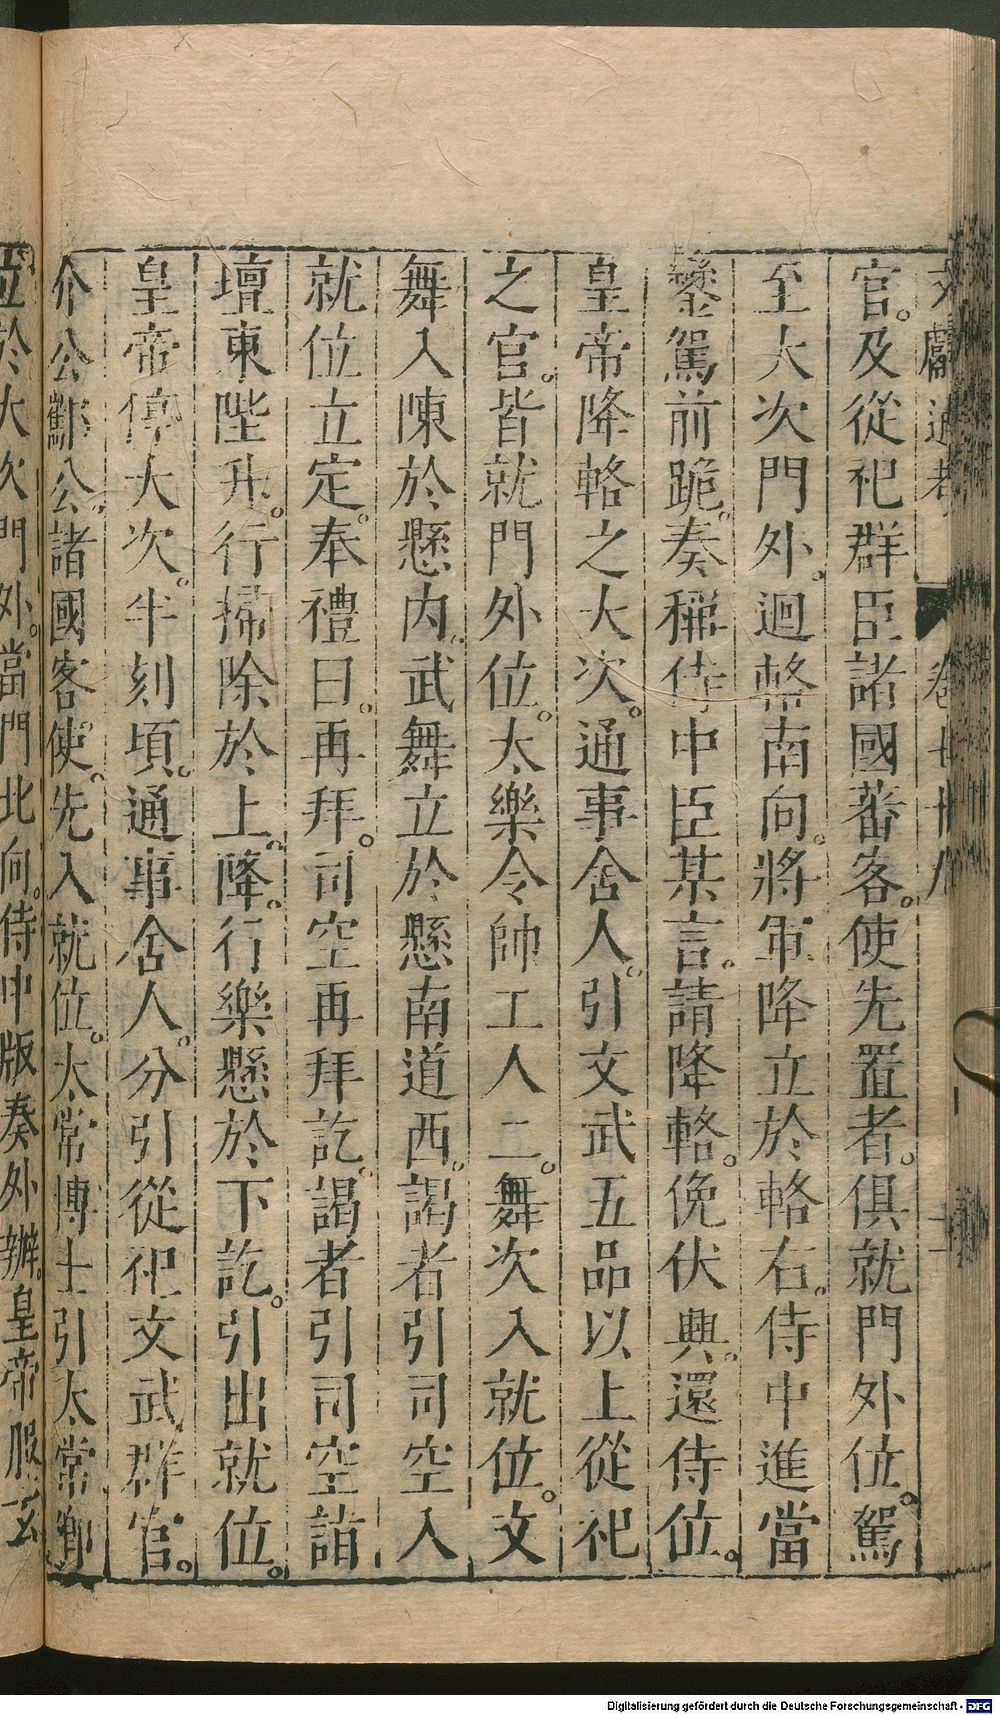 官。及從祀群臣諸國蕃客。使先置者。俱就門外位。駕
至大次門外。迴輅南向。將軍降立於輅右。侍中進當
鑾駕前跪。奏稱侍中臣某言。請降輅。俛伏興。還侍位。
皇帝降輅之大次。通事舍人。引文武五品以上從祀
之官。皆就門外位。太樂令帥工人二。舞次入就位。文
舞入陳於懸内。武舞立於懸南道西。謁者引司空入
就位立定。奉禮曰。再拜。司空再拜訖。謁者引司空詣
壇東陛升。行掃除於上。降。行樂懸於下訖。引出就位。
皇帝停大次。半刻頃。通事舍人。分引從祀文武群官。
介公酅公。諸國客使。先入就位。太常博士引太常卿
立於大次門外。當門北向。侍中版奏外辦。皇帝服玄
Digitalisierung gefördert durch die Deutsche Forschungsgemeinschaft - DFG